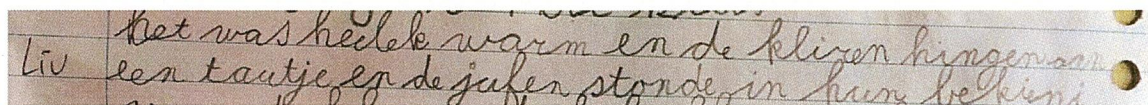 het was heelek warm en de kliren hingen aan
Liv een tautje en de jufen stonde in hun bekieni